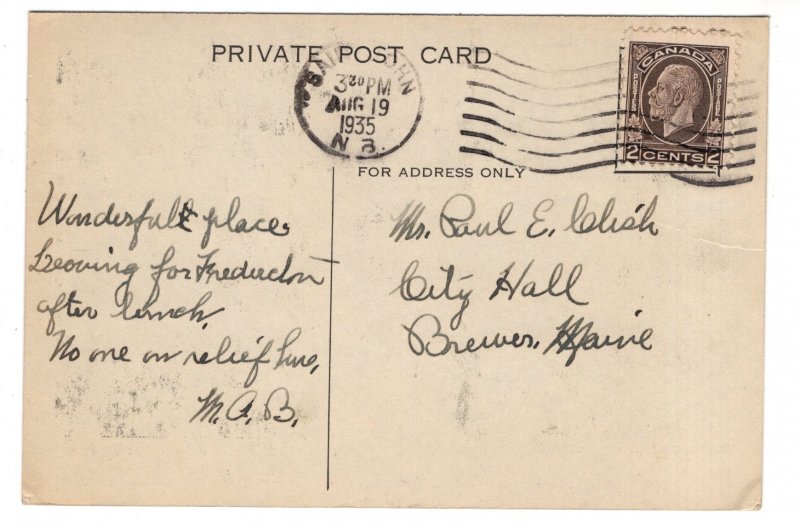 PRIVATE POST CARD
SAINT JOHN
3 30 PM
AUG 19
1935
N.B.
CANADA
POSTES POSTAGE
2 CENTS 2
FOR ADDRESS ONLY
Wonderful place.
Leaving for Fredericton
after lunch.
No one on relief here,
M.A.B.
Mr. Paul E. Clish
City Hall
Brewer, Maine